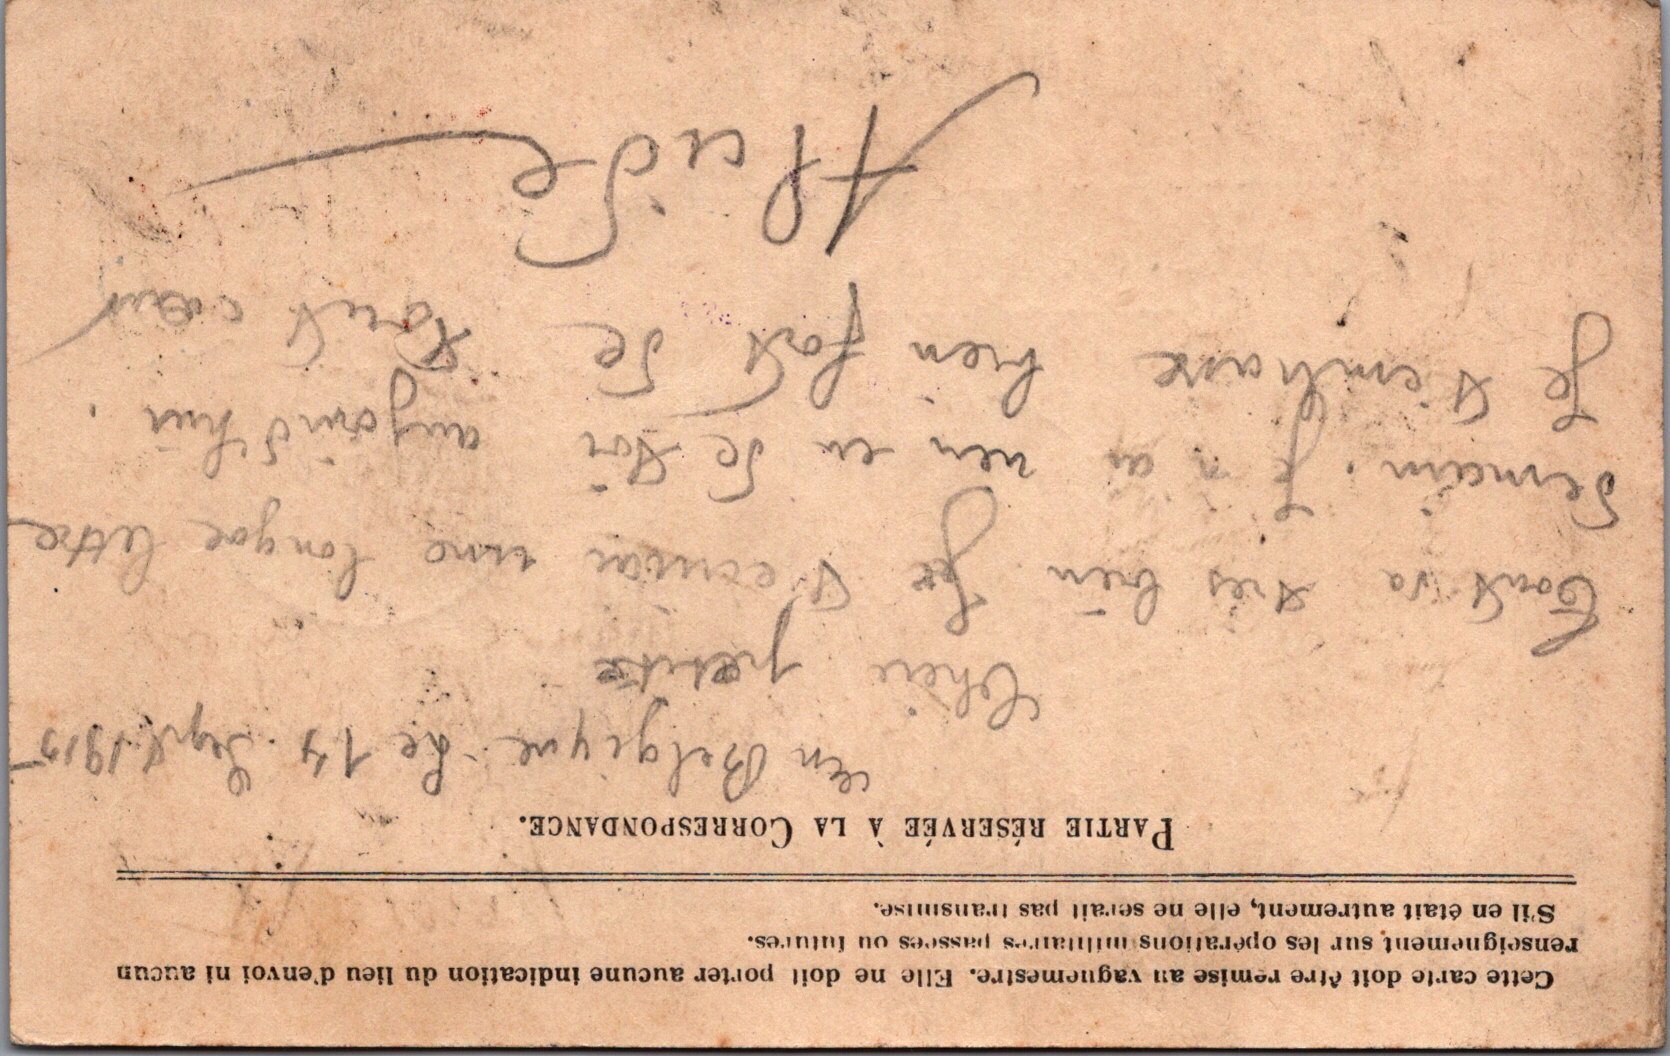 Cette carte doit être remise au vaguemestre. Elle ne doit porter aucune indication du lieu d'envoi ni aucun
renseignement sur les opérations militaires passées ou futures.
S'il en était autrement, elle ne serait pas transmise.
PARTIE RÉSERVÉE À LA CORRESPONDANCE.
En Belgique le 14 Sept. 1915
Chère petite
Tout va très bien Je t'écrirai une longue lettre
demain. Je n ai rien eu de toi aujourd'hui.
Je t'embrasse bien fort de tout cœur
Alcide